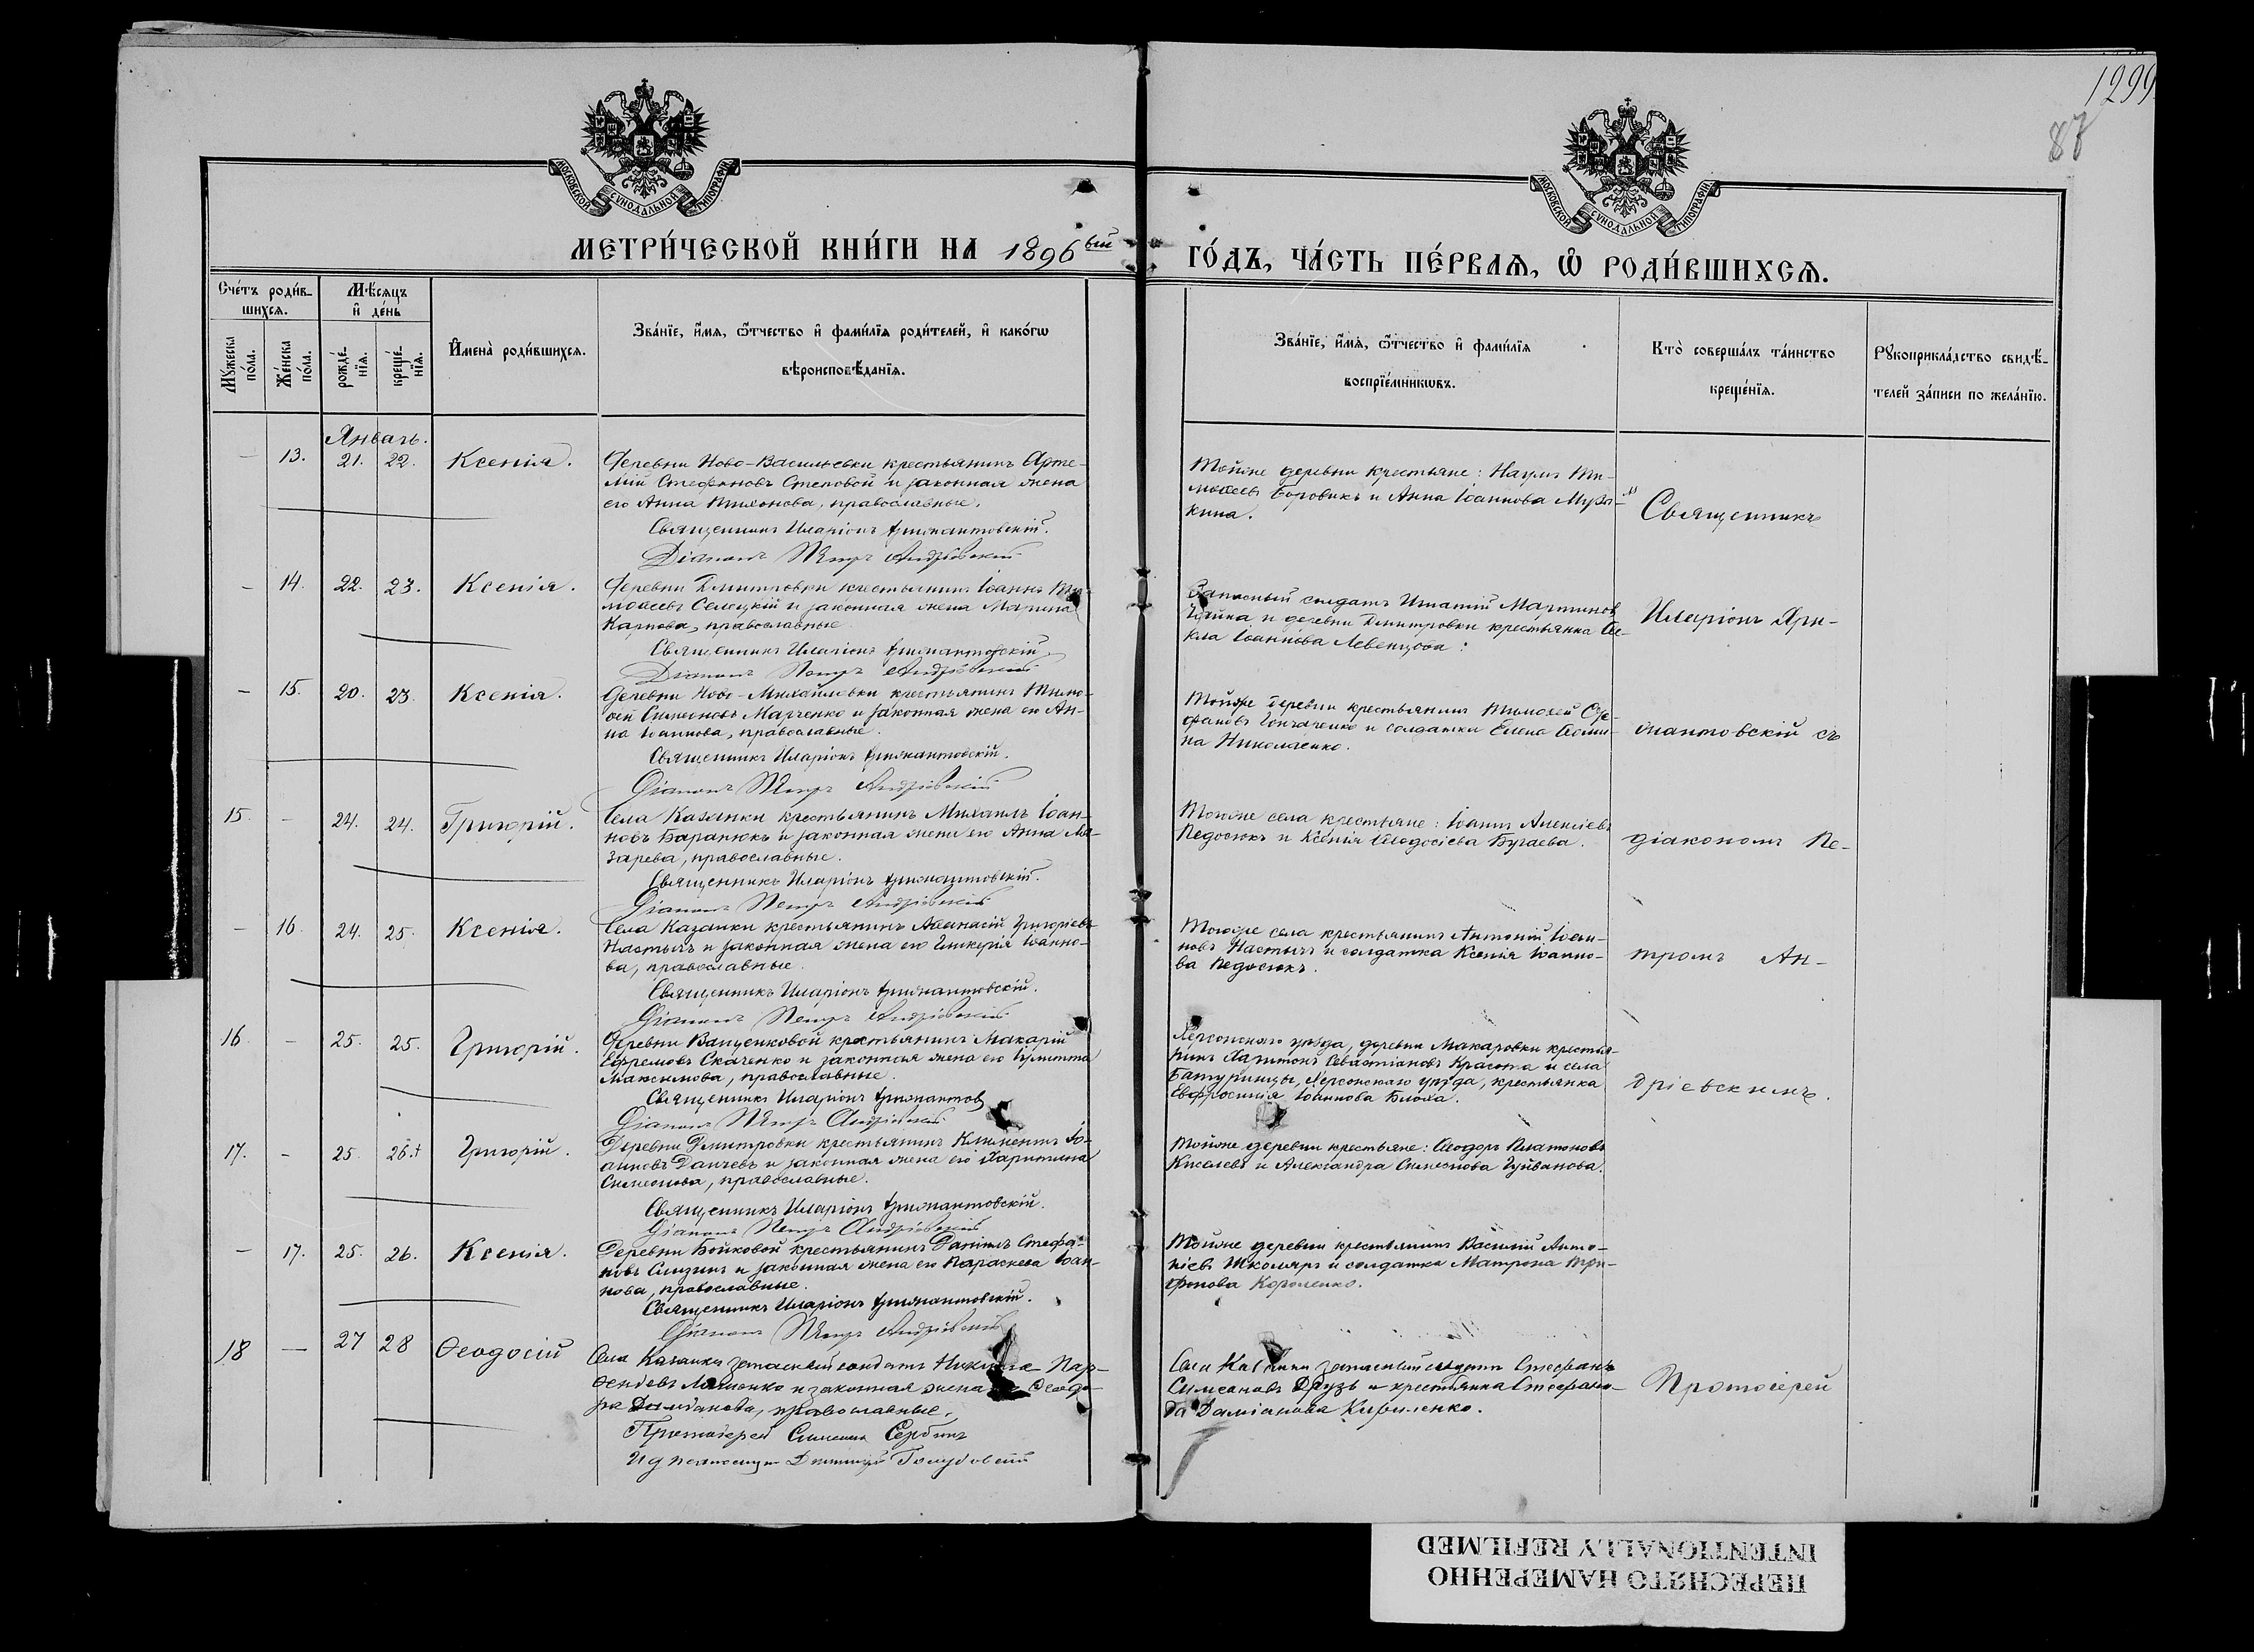 1299
87
МОСКОВСКОЙ СѴНОДАЛЬНОЙ ТИПОГРАФІИ
МОСКОВСКОЙ СѴНОДАЛЬНОЙ ТИПОГРАФІИ
МЕТРИ́ЧЕСКОЙ КНИ́ГИ НА 1896 ый
ГО́ДЪ, ЧА́СТЬ ПЕ́РВАѦ, Ѡ҆ РОДИ́ВШИХСѦ.
Сче́тъ роди́в-
шихсѧ.
Мѣ́сѧцъ
и҆ де́нь
Мꙋ́жеска
по́ла.
Же́нска
по́ла.
рожде́-
нїѧ.
креще́-
нїѧ.
И҆мена̀ роди́вшихсѧ.
Зва́нїе, и҆́мѧ, ѻ҆́тчество и҆ фами́лїѧ роди́телей, и҆ како́гѡ
вѣроисповѣ́данїѧ.
Зва́нїе, и҆́мѧ, ѻ҆́тчество и҆ фами́лїѧ
воспрїе́мникѡвъ.
Кто̀ соверша́лъ та́инство
креще́нїѧ.
Рꙋкоприкла́дство свидѣ́-
телей за́писи по жела́нїю.
Январь.
— 13. 21. 22. Ксенія.
Деревни Ново-Васильевки крестьянинъ Арте-
мій Стефановъ Степовой и законная жена
его Анна Тихонова, православные.
Священникъ Иларіонъ Крижантовскій.
Діаконъ Петръ Андріевскій
Тойже деревни крестьяне: Наумъ Ти-
моѳеевъ Боровикъ и Анна Іоаннова
кина.
Священникъ
— 14. 22. 23. Ксенія.
Деревни Димитровки крестьянинъ Іоаннъ Ти-
моѳеевъ Селецкій и законная жена Марина
Карпова, православные
Священникъ Иларіонъ Крижантовскій
Діаконъ Петръ Андріевскій
Запасный солдатъ Игнатій Мартиновъ
Чайка и деревни Димитровки крестьянка Ѳе-
кла Іоаннова Левенцова.
Иларіонъ Кри-
— 15. 20. 23. Ксенія.
Деревни Ново-Михайловки крестьянинъ Тимо-
ѳей Симеоновъ Марченко и законная жена его Ан-
на Іоаннова, православные.
Священникъ Иларіонъ Крижантовскій.
Діаконъ Петръ Андріевскій
Тойже деревни крестьянинъ Тимоѳей Сте-
фановъ Гончаренко и солдатка Елена Ѳоми-
на Николаенко.
жантовскій съ
15. — 24. 24. Григорій.
Села Казанки крестьянинъ Михаилъ Іоан-
новъ Баранюкъ и законная жена его Анна Ла-
зарева, православные.
Священникъ Иларіонъ Крижантовскій.
Діаконъ Петръ Андріевскій
Тогоже села крестьяне: Іоаннъ Алексіевъ
Недосюкъ и Ксенія Ѳеодосіева Бугаева.
діакономъ Пе-
— 16. 24. 25. Ксенія.
Села Казанки крестьянинъ Аѳанасій Григоріевъ
Настычъ и законная жена его Гликерія Іоанно-
ва, православные.
Священникъ Иларіонъ Крижантовскій.
Діаконъ Петръ Андріевскій
Тогоже села крестьянинъ Антоній Іоан-
новъ Настычъ и солдатка Ксенія Іоанно-
ва Недосюкъ.
тромъ Ан-
16 — 25. 25. Григорій.
Деревни Ваценковой крестьянинъ Макарій
Ефремовъ Скаченко и законная жена его
Максимова, православные.
Священникъ Иларіонъ Крижантов
Діаконъ Петръ Андріевскій
Херсонскаго уѣзда, деревни Макаровки крестья-
нинъ Харитонъ Севастіановъ Красота и села
Батуринцы, Херсонскаго уѣзда, крестьянка
Евфросинія Іоаннова Блоха.
дріевскимъ.
17. — 25. 26. Григорій.
Деревни Димитровки крестьянинъ Климентъ Іо-
анновъ Данчевъ и законная жена его Харитина
Симеонова, православные.
Священникъ Иларіонъ Крижантовскій.
Діаконъ Петръ Андріевскій
Тойже деревни крестьяне: Ѳеодоръ Платоновъ
Киселевъ и Александра Симеонова Гуйванова.
— 17. 25. 26. Ксенія.
Деревни Бойковой крестьянинъ Даніилъ Стефа-
новъ Слизинъ и законная жена его Параскева Іоан-
нова, православные.
Священникъ Иларіонъ Крижантовскій.
Діаконъ Петръ Андріевскій
Тойже деревни крестьянинъ Василій Анто-
ніевъ Школяръ и солдатка Матрона Три-
фонова Короленко.
18 — 27 28 Ѳеодосій
Села Казанки запасный солдатъ Никита Пар-
ѳеніевъ Ляшенко и законная жена Ѳеодо-
ра Даміанова, православные.
Протоіерей Симеонъ Сербинъ
И д псаломщика Димитрій Голубовскій
Села Казанки запасный солдатъ Стефанъ
Симеоновъ Друзь и крестьянка Стефани-
да Даміанова Кириленко.
Протоіерей
ПЕРЕСНЯТО НАМЕРЕННО
INTENTIONALLY REFILMED